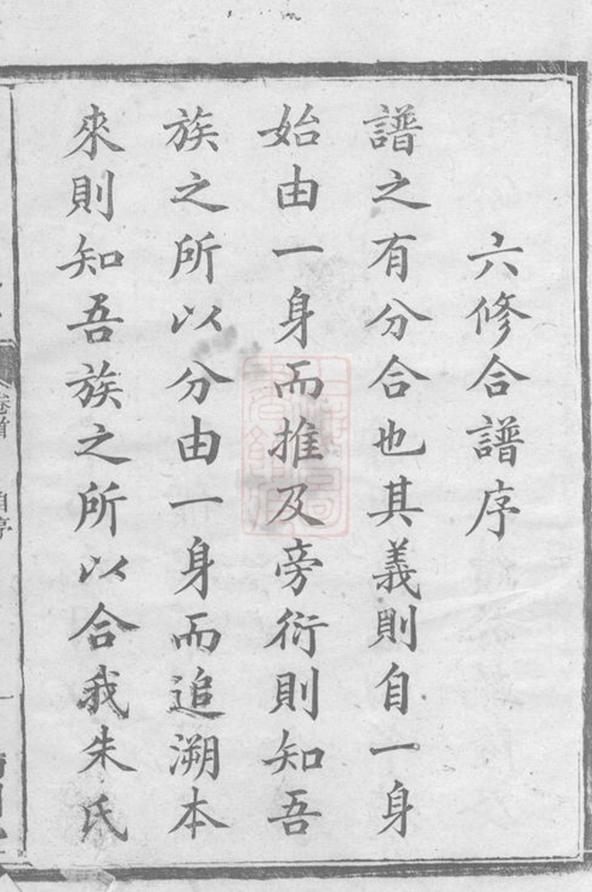 六修合譜序
譜之有分合也其義則自一身
始由一身而推及旁衍則知吾
族之所以分由一身而追溯本
來則知吾族之所以合我朱氏
卷首